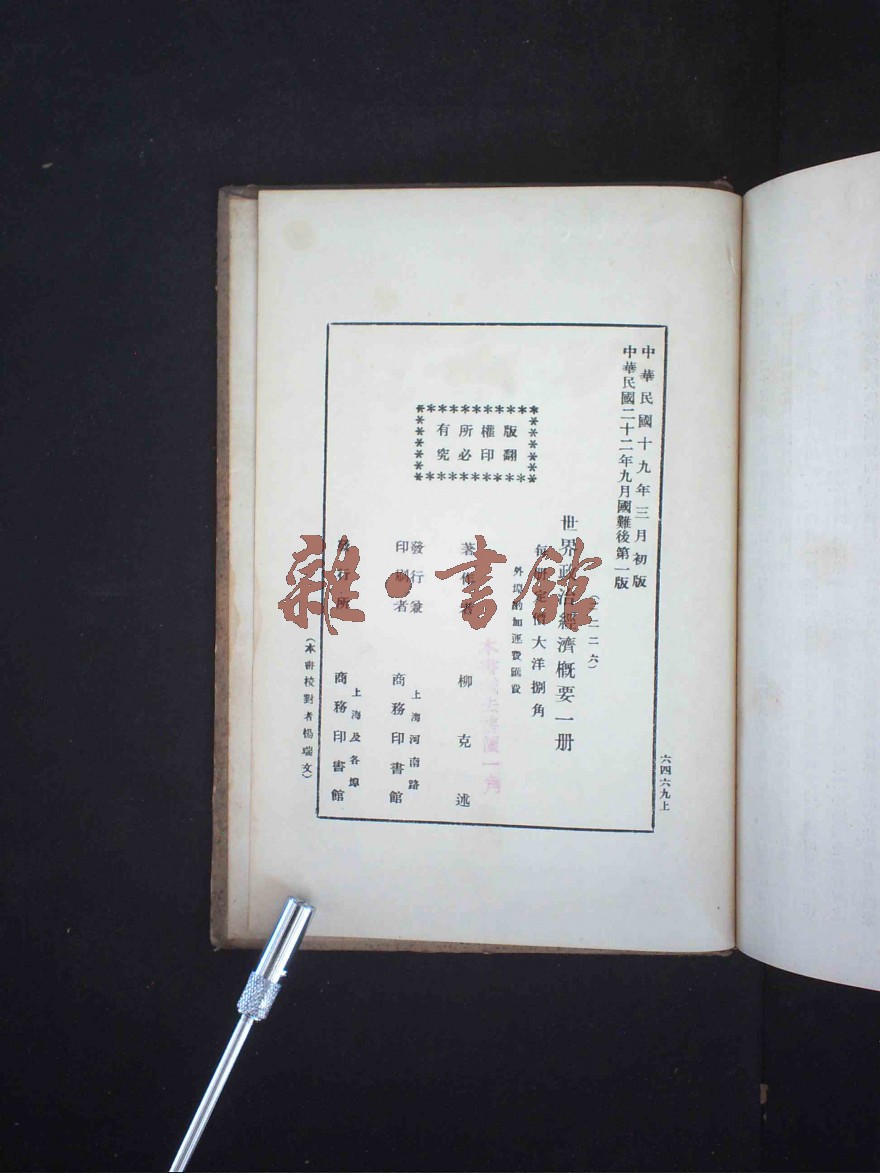 中華民國十九年三月初版
中華民國二十二年九月國難後第一版
六四六九上
版權所有
翻印必究
世界政治經濟概要一册
每册定價大洋捌角
外埠酌加運費匯費
著作者 柳克述
發行兼印刷者
上海河南路
商務印書館
發行所
上海及各埠
商務印書館
(本書校對者楊瑞文)
雜·書館